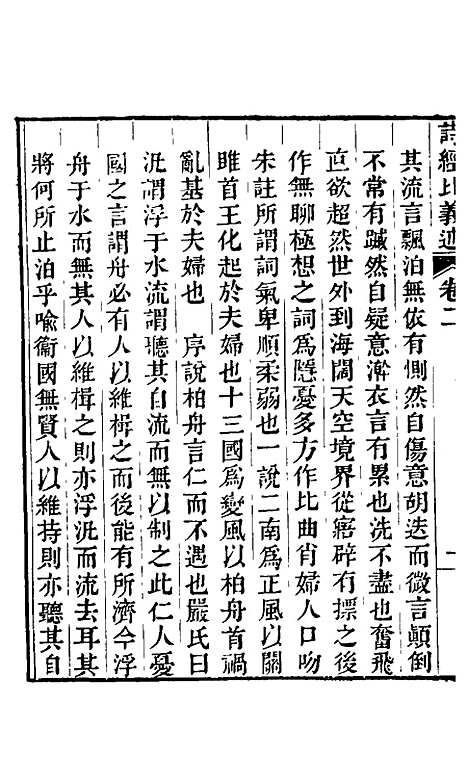 詩經比義述 卷二 二
其流言飄泊無依有惻然自傷意胡迭而微言顛倒
不常有蹴然自疑意澣衣言有累也洗不盡也奮飛
直欲超然世外到海闊天空境界從寤辟有摽之後
作無聊極想之詞爲隱憂多方作比曲肖婦人口吻
朱註所謂詞氣卑順柔弱也一說二南爲正風以關
雎首王化起於夫婦也十三國爲變風以柏舟首禍
亂基於夫婦也　序說柏舟言仁而不遇也嚴氏曰
汎謂浮于水流謂聽其自流而無以制之此仁人憂
國之言謂舟必有人以維楫之而後能有所濟今浮
舟于水而無其人以維楫之則亦浮汎而流去耳其
將何所止泊乎喻衞國無賢人以維持則亦聽其自